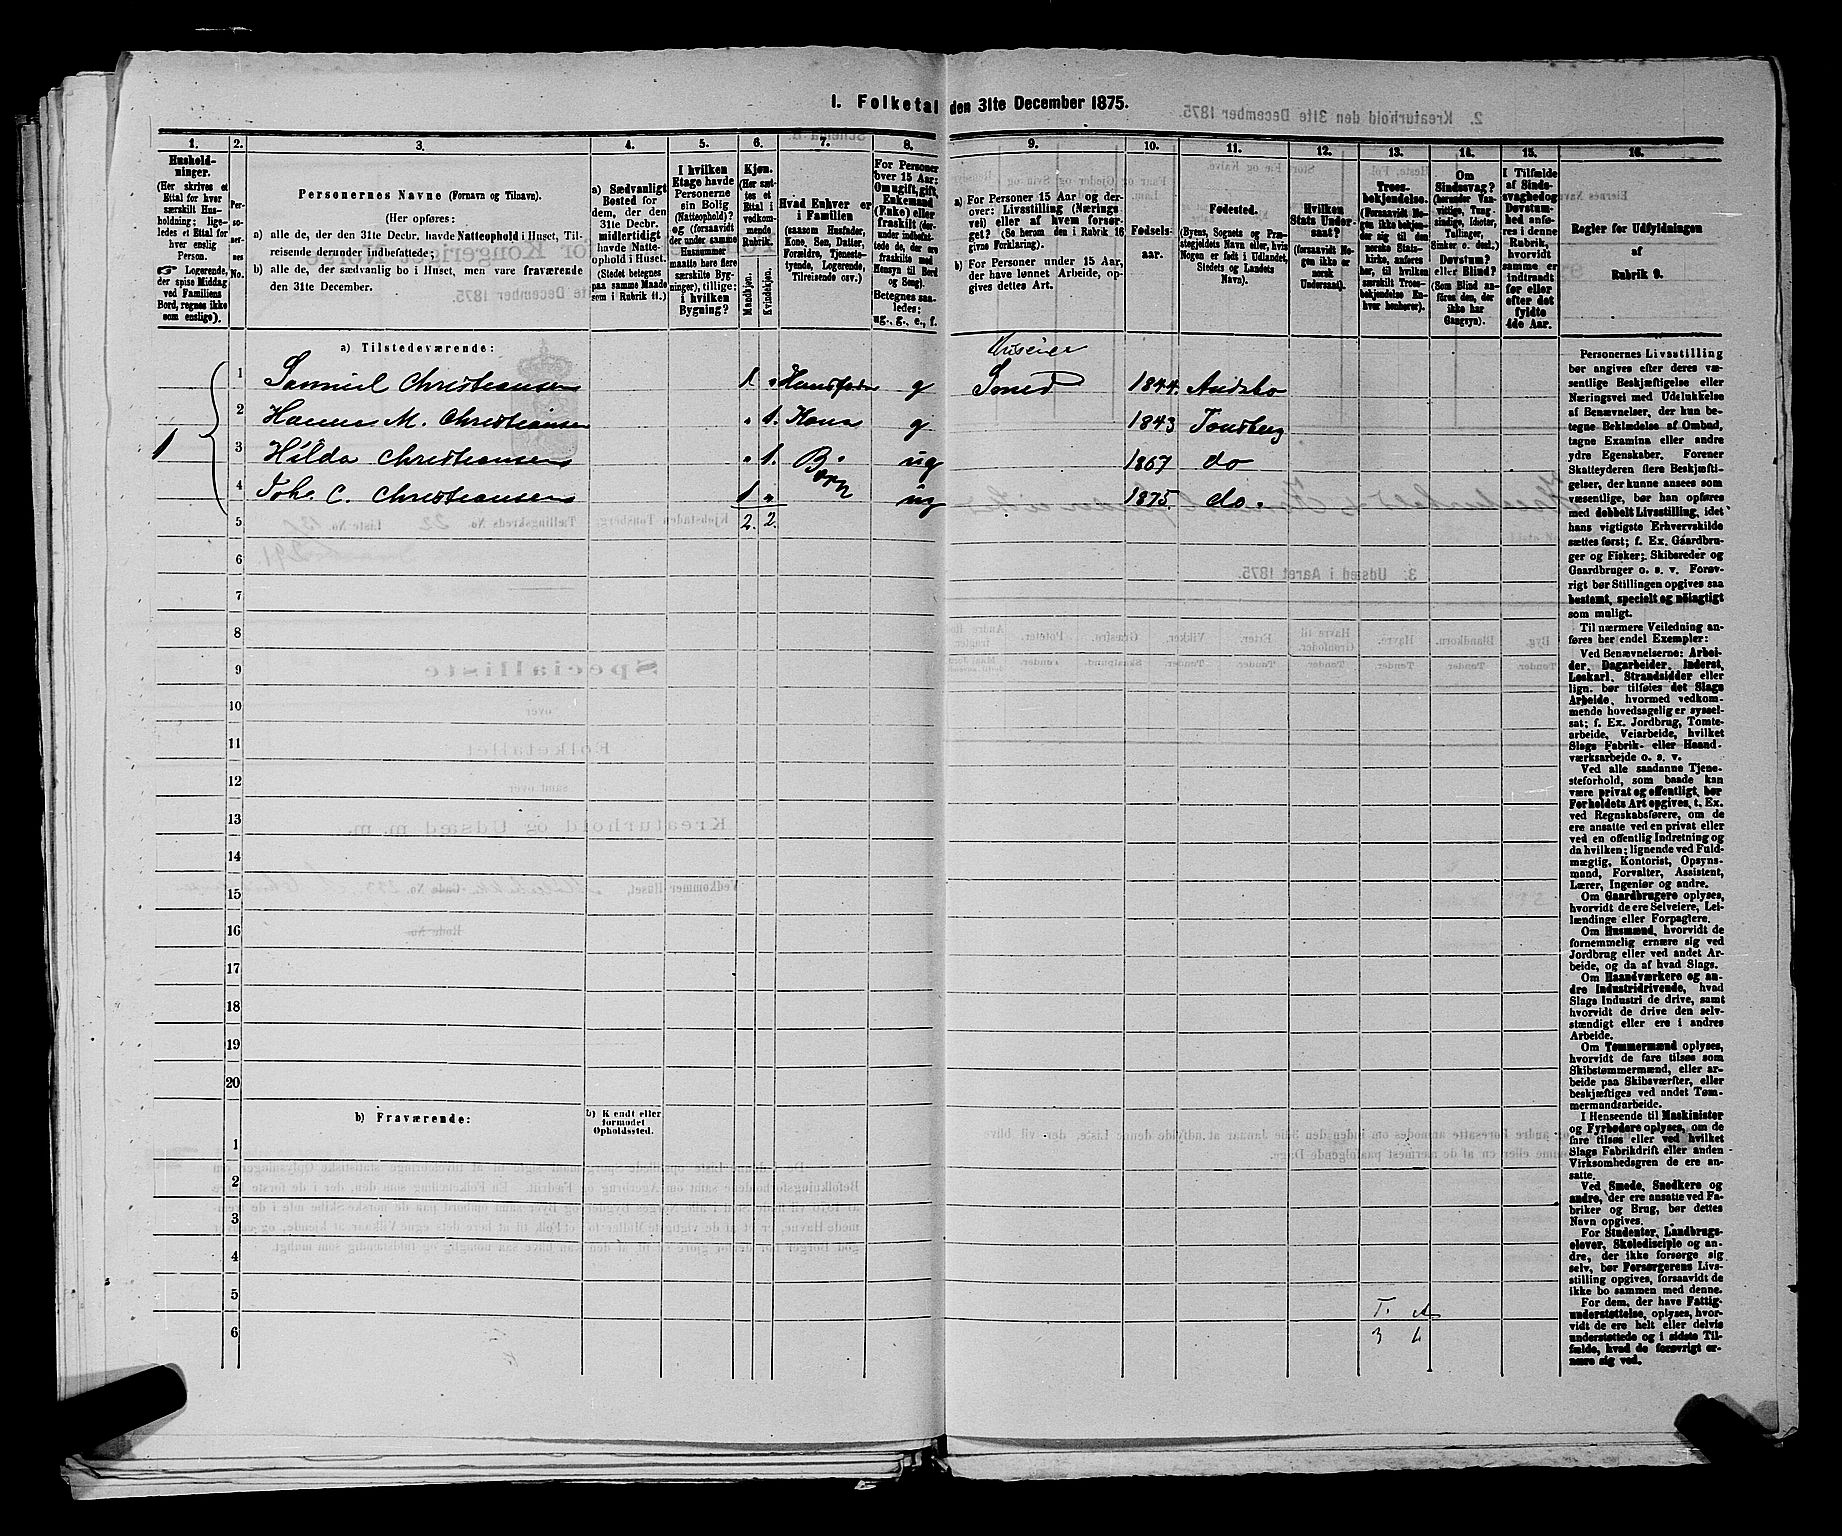 1. Folketal den 31te December 1875.
1. 2. 3. 4. 5. 6. 7. 8. 9. 10. 11. 12. 13. 14. 15. 16.
Husholdninger.
(Her skrives et
Ettal for hver
særskilt Husholdning; ligeledes et Ettal for
hver enslig
Person.
☞ Logerende,
der spise Middag
ved Familiens
Bord, regnes ikke
som enslige).
Personernes No.
Personernes Navne (Fornavn og Tilnavn).
(Her opføres:
a) alle de, der den 31te Decbr. havde Natteophold i Huset, Tilreisende derunder indbefattede;
b) alle de, der sædvanlig bo i Huset, men vare fraværende
den 31te December.
a) Sædvanligt
Bosted for
dem, der den
31te Decbr.
midlertidigt
havde Natteophold i Huset.
(Stedet betegnes
paa samme Maade
som i Rubrik 11.)
I hvilken
Etage havde
Personerne
sin Bolig
(Natteophold)?
og (forsaavidt
der under samme
Husnummer
maatte høre flere
særskilte Bygninger), tillige:
i hvilken
Bygning?
Kjøn.
(Her sættes et
Ettal i
vedkommende
Rubrik.
Mandkjøn.
Kvindekjøn.
Hvad Enhver er
i Familien
(saasom Husfader,
Kone, Søn, Datter,
Forældre, Tjenestetyende, Logerende,
Tilreisende osv.)
For Personer
over 15 Aar:
Om ugift, gift,
Enkemand
(Enke) eller
fraskilt
Betegnes saaledes:
ug., g., e., f.
a) For Personer 15 Aar og derover: Livsstilling (Næringsvei) eller af hvem forsørget? (Se herom den i Rubrik 16
givne Forklaring).
b) For Personer under 15 Aar,
der have lønnet Arbeide, opgives dettes Art.
Fødselsaar.
Fødested.
(Byens, Sognets og Præstegjeldets Navn eller, hvis
Nogen er født i Udlandet,
Stedets og Landets
Navn).
Hvilken
Stats Undersaat?
(forsaavidt Nogen ikke er
norsk
Undersaat).
Troesbekjendelse.
(Forsaavidt Nogen ikke bekjender sig til den
norske Statskirke, anføres
her, til hvilken
særskilt Troesbekjendelse Enhver henhører).
Om
Sindssvag?
(herunder Vanvittige, Tungsindige, Idioter,
Tullinger,
Sinker o. desl.)
Døvstum?
eller Blind?
(Som Blind anføres den, der
ikke har
Gangsyn).
I Tilfælde
af Sindssvaghed og
Døvstumhed anføres i denne
Rubrik,
hvorvidt
samme er
indtraadt
før eller
efter det
fyldte
4de Aar.
Regler for Udfyldningen
af
Rubrik 9.
a) Tilstedeværende:
Huseier
1 1 Samuel Christiansen 1 " Huusfader g Smed 1844.
2 Hanna M. Christiansen " 1. Kone g 1843 Tønsberg
3 Hilda Christiansen " 1. Børn ug 1867 do
4 Johs C. Christiansen 1 " ug 1875. do.
5 2. 2.
6
7
8
9
10
11
12
13
14
15
16
17
18
19
20
b) Fraværende:
b) Kjendt eller
formodet
Opholdssted.
1
2
3
4
5
6
Personernes Livsstilling
bør angives efter deres væsentlige Beskjæftigelse eller
Næringsvei med Udelukkelse
af Benævnelser, der kun betegne Beklædelse af Ombud,
tagne Examina eller andre
ydre Egenskaber. Forener
Skatteyderen flere Beskjæftigelser, der kunne ansees som
væsentlige, bør han opføres
med dobbelt Livsstilling, idet
hans vigtigste Erhvervskilde
sættes først; f. Ex. Gaardbruger og Fisker; Skibsreder og
Gaardbruger o. s. v. Forøvrigt bør Stillingen opgives saa
bestemt, specielt og nöiagtigt
som muligt.
Til nærmere Veiledning anføres her endel Exempler:
Ved Benævnelserne: Arbeider, Dagarbeider, Inderst,
Løskarl, Strandsidder eller
lign. bør tilføies det Slags
Arbeide, hvormed vedkommende hovedsagelig er sysselsat; f. Ex. Jordbrug, Tomtearbeide, Veiarbeide, hvilket
Slags Fabrik- eller Haandværksarbeide o. s. v.
Ved alle saadanne Tjenesteforhold, som baade kan
være privat og offentligt, bør
Forholdets Art opgives, t. Ex.
ved Regnskabsførere, om de
ere ansatte ved en privat eller
ved en offentlig Indretning og
da hvilken; lignende ved Fuldmægtig, Kontorist, Opsynsmand, Forvalter, Assistent,
Lærer, Ingeniør og andre.
Om Gaardbrugere oplyses,
hvorvidt de ere Selveiere, Leilændinge eller Forpagtere.
Om Husmænd, hvorvidt de
fornemmelig ernære sig ved
Jordbrug eller ved andet Arbeide, og da af hvad Slags.
Om Haandværkere og andre Industridrivende, hvad
Slags Industri de drive, samt
hvorvidt de drive den selvstændigt eller ere i andres
Arbeide.
Om Tømmermænd oplyses,
hvorvidt de fare tilsøs som
Skibstømmermænd, eller arbeide paa Skibsværfter, eller
beskjæftiges ved andet Tømmermandsarbeide.
I Henseende til Maskinister
og Fyrbødere oplyses, om de
fare tilsøs eller ved hvilket
Slags Fabrikdrift eller anden
Virksomhedsgren de ere ansatte.
Ved Smede, Snedkere og
andre, der ere ansatte ved Fabriker og Brug, bør dettes
Navn opgives.
For Studenter, Landbrugselever, Skoledisciple og andre, der ikke forsørge sig
selv, bør Forsørgerens Livsstilling opgives, forsaavidt de
ikke bo sammen med denne.
For dem, der have Fattigunderstøttelse, oplyses, hvorvidt de ere helt eller delvis
understøttede og i sidste Tilfælde, hvad de forøvrigt ernære sig ved.